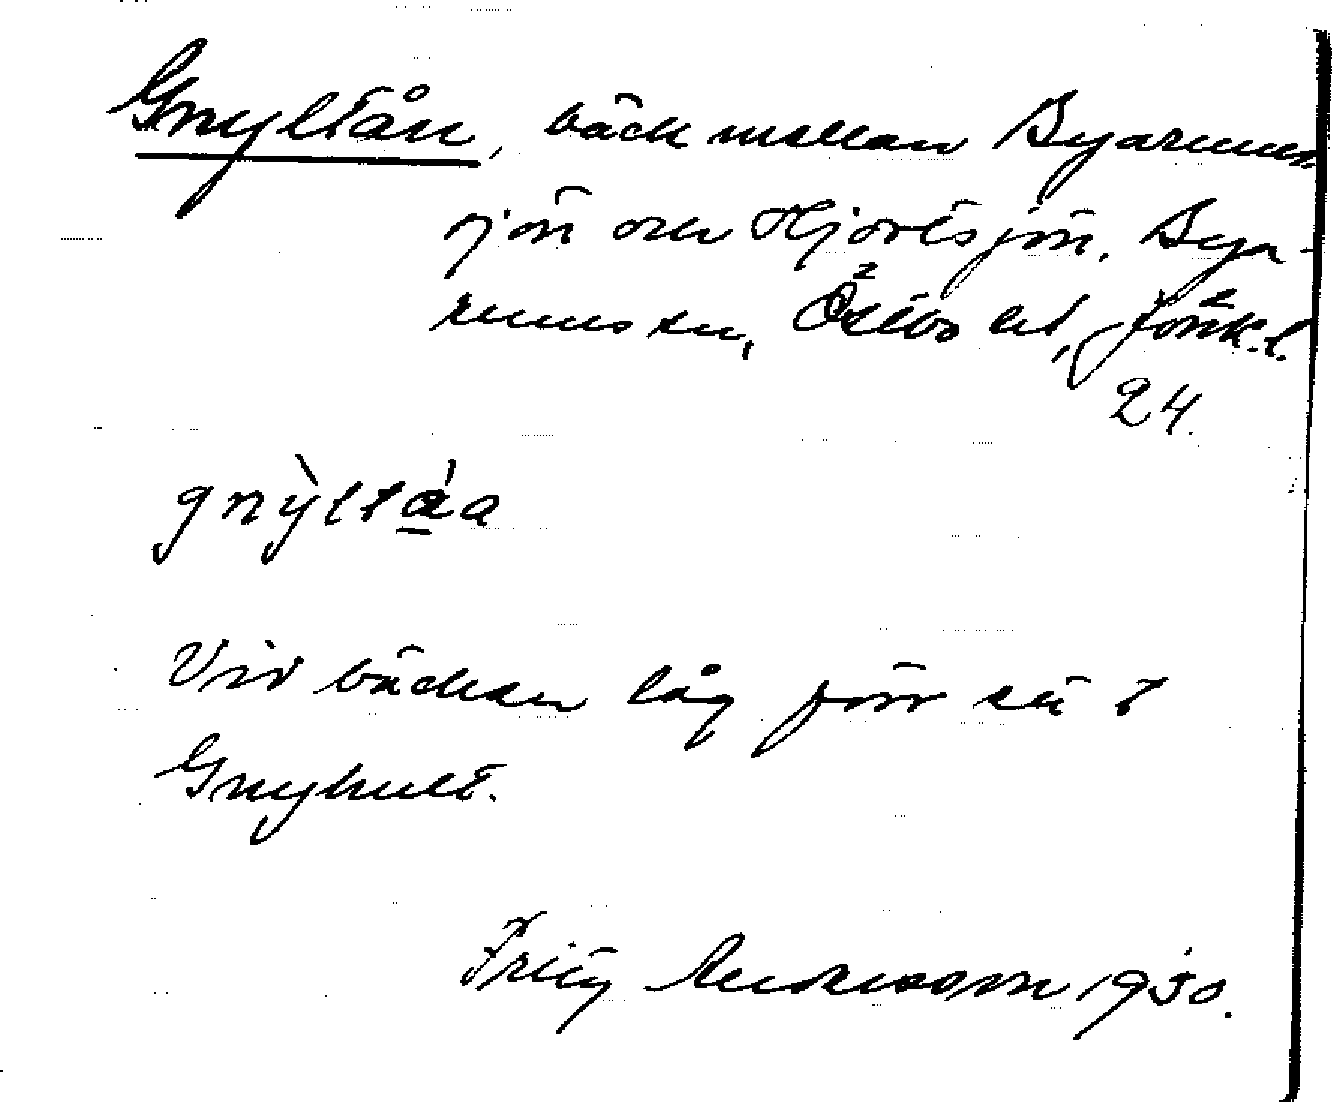 Gnyltån, bäck mellan Byarums
sjön och Hjortsjön, Bya-
rums sn, Östbo hd, Jönk. l.
24.
gnỳltáa
Vid bäcken låg förr ett t
Gnyhult.
Fritz Andersson 1930.